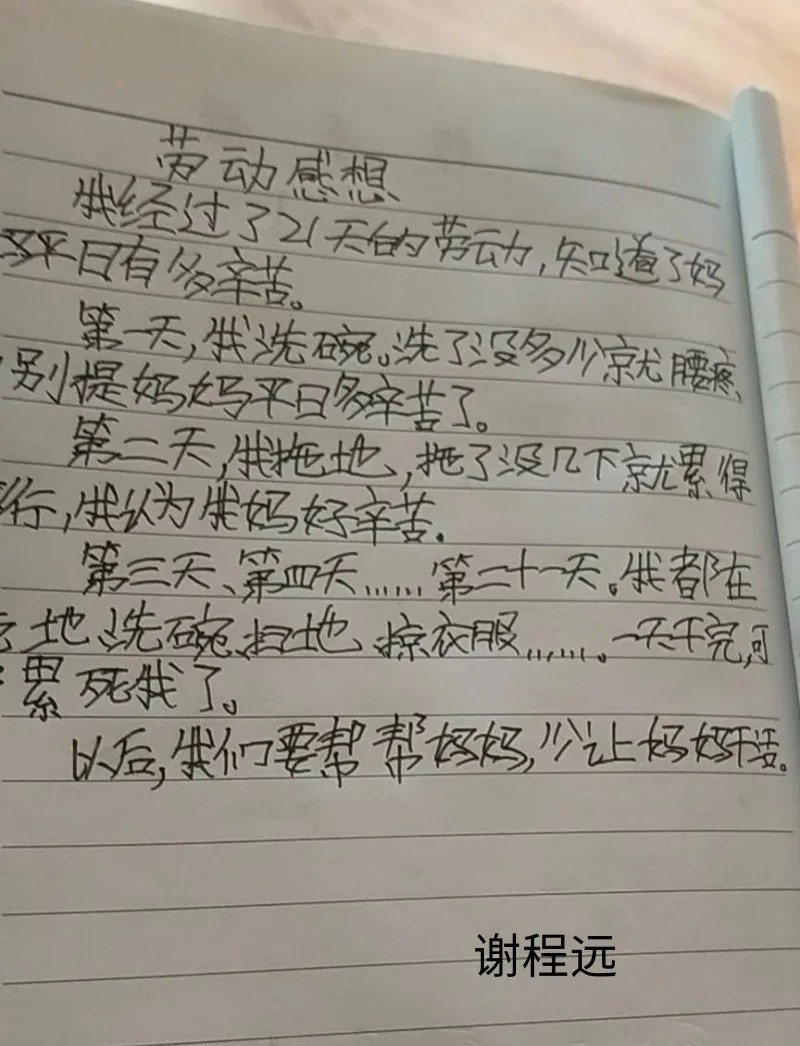 劳动感想
我经过了21天的劳动,知道了妈
平日有多辛苦。
第一天,我洗碗。洗了没多少就腰疼,
别提妈妈平日多辛苦了。
第二天,我拖地,拖了没几下就累得
行,我认为我妈好辛苦.
第三天、第四天……第二十一天。我都在
地、洗碗、扫地、掠衣服……。一天干完,可
累死我了。
以后,我们要帮帮妈妈,少让妈妈干活。
谢程远